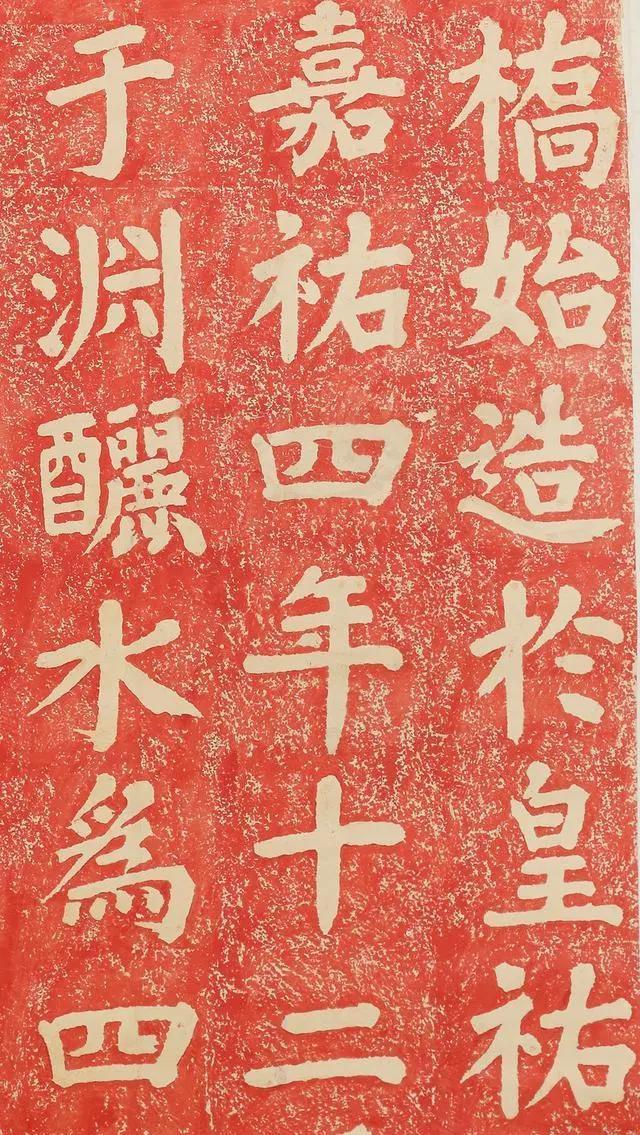 橋始造於皇祐
嘉祐四年十二
于淵釃水為四